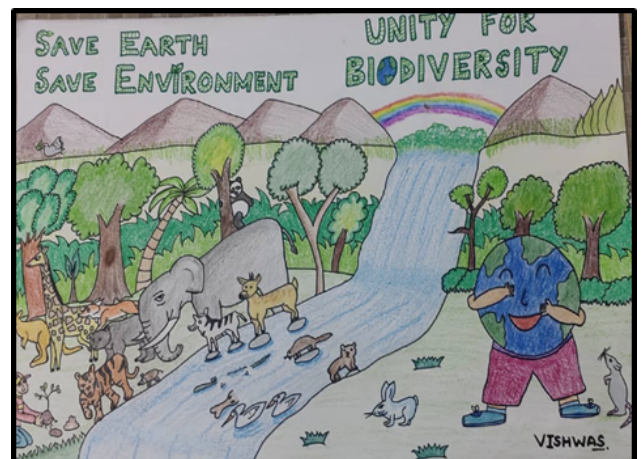 SAVE EARTH
SAVE ENVIRONMENT
UNITY FOR
BIODIVERSITY
VISHWAS.